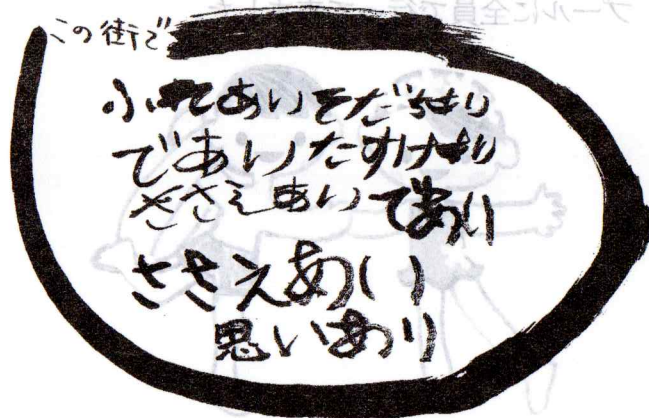 この街で
ふれあいそだちあい
であいたすけあい
ささえあいであい
ささえあい
思いあい